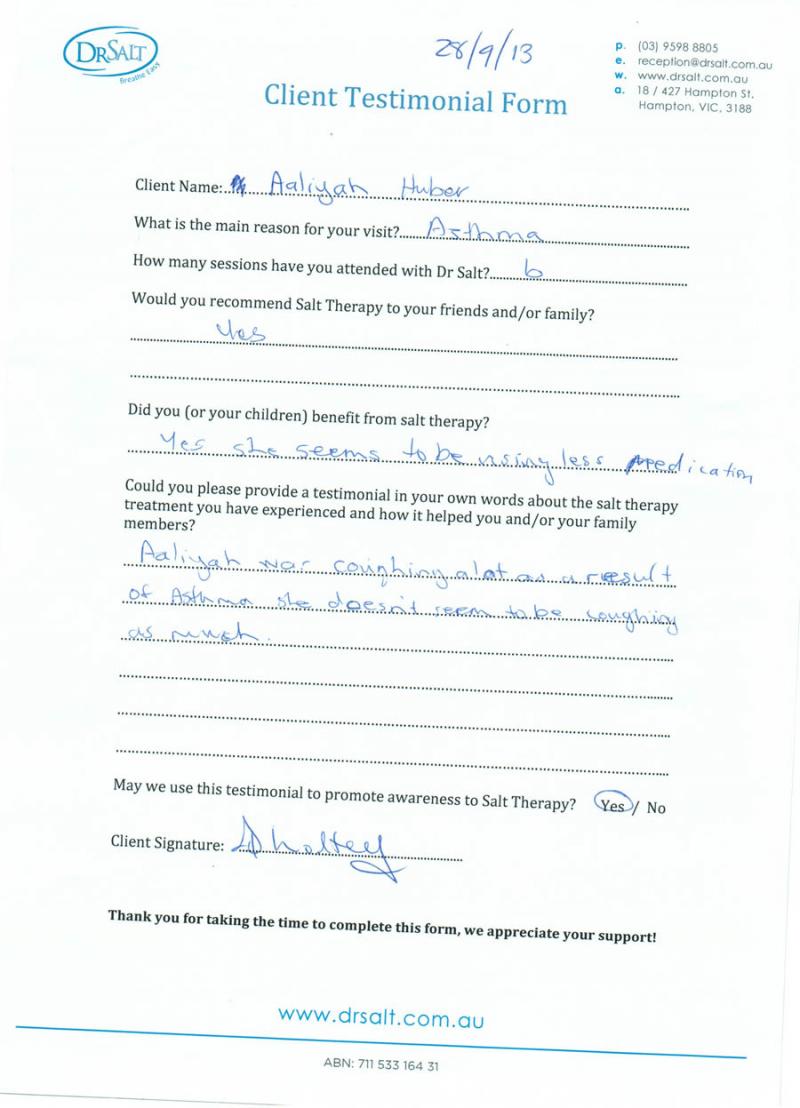 DRSALT
Breathe Easy
28/9/13
p. (03) 9598 8805
e. reception@drsalt.com.au
w. www.drsalt.com.au
a. 18 / 427 Hampton St,
Hampton, VIC, 3188
Client Testimonial Form
Client Name: Aaliyah Huber
What is the main reason for your visit? Asthma
How many sessions have you attended with Dr Salt? 6
Would you recommend Salt Therapy to your friends and/or family?
Yes
Did you (or your children) benefit from salt therapy?
Yes she seems to be using less medication
Could you please provide a testimonial in your own words about the salt therapy
treatment you have experienced and how it helped you and/or your family
members?
Aaliyah was coughing alot as a result
of Asthma she doesn't seem to be coughing
as much.
May we use this testimonial to promote awareness to Salt Therapy? Yes / No
Client Signature:
Thank you for taking the time to complete this form, we appreciate your support!
www.drsalt.com.au
ABN: 711 533 164 31